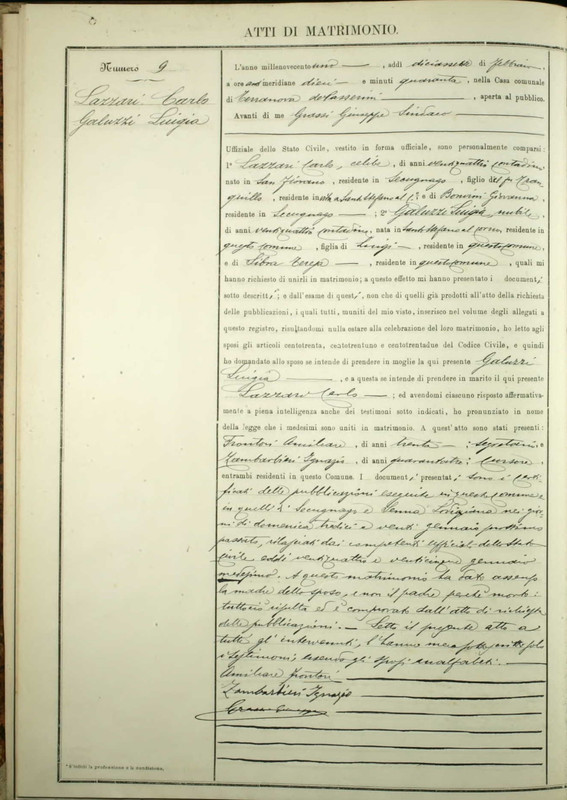 ATTI DI MATRIMONIO.
Numero 9
Lazzari Carlo
Galuzzi Luigia
L'anno millenovecento uno, addì diciassette di febbraio
a ore ant meridiane dieci e minuti quaranta, nella Casa comunale
di Terranova de Passerini, aperta al pubblico.
Avanti di me Grassi Giuseppe Sindaco
Uffiziale dello Stato Civile, vestito in forma ufficiale, sono personalmente comparsi:
1° Lazzari Carlo, celibe, di anni ventiquattro, contadino
nato in San Fiorano, residente in Secugnago, figlio del fu
residente in e di Giovanna
residente in Secugnago; 2° Galuzzi Luigia nubile
di anni ventiquattro contadina, nata in Santo Stefano al corno, residente in
questo comune, figlia di Luigi, residente in questo comune
e di Teresa, residente in questo comune, quali mi
hanno richiesto di unirli in matrimonio; a questo effetto mi hanno presentato i documenti
sotto descritti; e dall'esame di questi, non che di quelli già prodotti all'atto della richiesta
delle pubblicazioni, i quali tutti, muniti del mio visto, inserisco nel volume degli allegati a
questo registro, risultandomi nulla ostare alla celebrazione del loro matrimonio, ho letto agli
sposi gli articoli centotrenta, centotrentuno e centotrentadue del Codice Civile, e quindi
ho domandato allo sposo se intende di prendere in moglie la qui presente Galuzzi
Luigia, e a questa se intende di prendere in marito il qui presente
Lazzari Carlo; ed avendomi ciascuno risposto affermativa-
mente a piena intelligenza anche dei testimoni sotto indicati, ho pronunziato in nome
della legge che i medesimi sono uniti in matrimonio. A quest'atto sono stati presenti:
Frontori Amilcare, di anni trenta, Segretario e
Zambarbieri Ignazio, di anni quarantatre, Cursore,
entrambi residenti in questo Comune. I documenti presentati sono i certi-
ficati delle pubblicazioni eseguite in questo comune
in quelli di Secugnago e Senna Lodigiana nei gior-
ni di domenica tredici e venti gennaio prossimo
passato, rilasciati dai competenti ufficiali dello Stato
civile addì ventiquattro e venticinque gennaio
medesimo. A questo matrimonio ha dato assenso
la madre dello sposo, e non il padre perchè morto
risulta ed è comprovato dall'atto di richiesta
delle pubblicazioni. Letto il presente atto a
tutti gl'intervenuti, l'hanno meco i soli
testimoni, essendo gli sposi analfabeti.
Amilcare Frontori
Zambarbieri Ignazio
Grassi Giuseppe
* S'indichi la professione o la condizione.